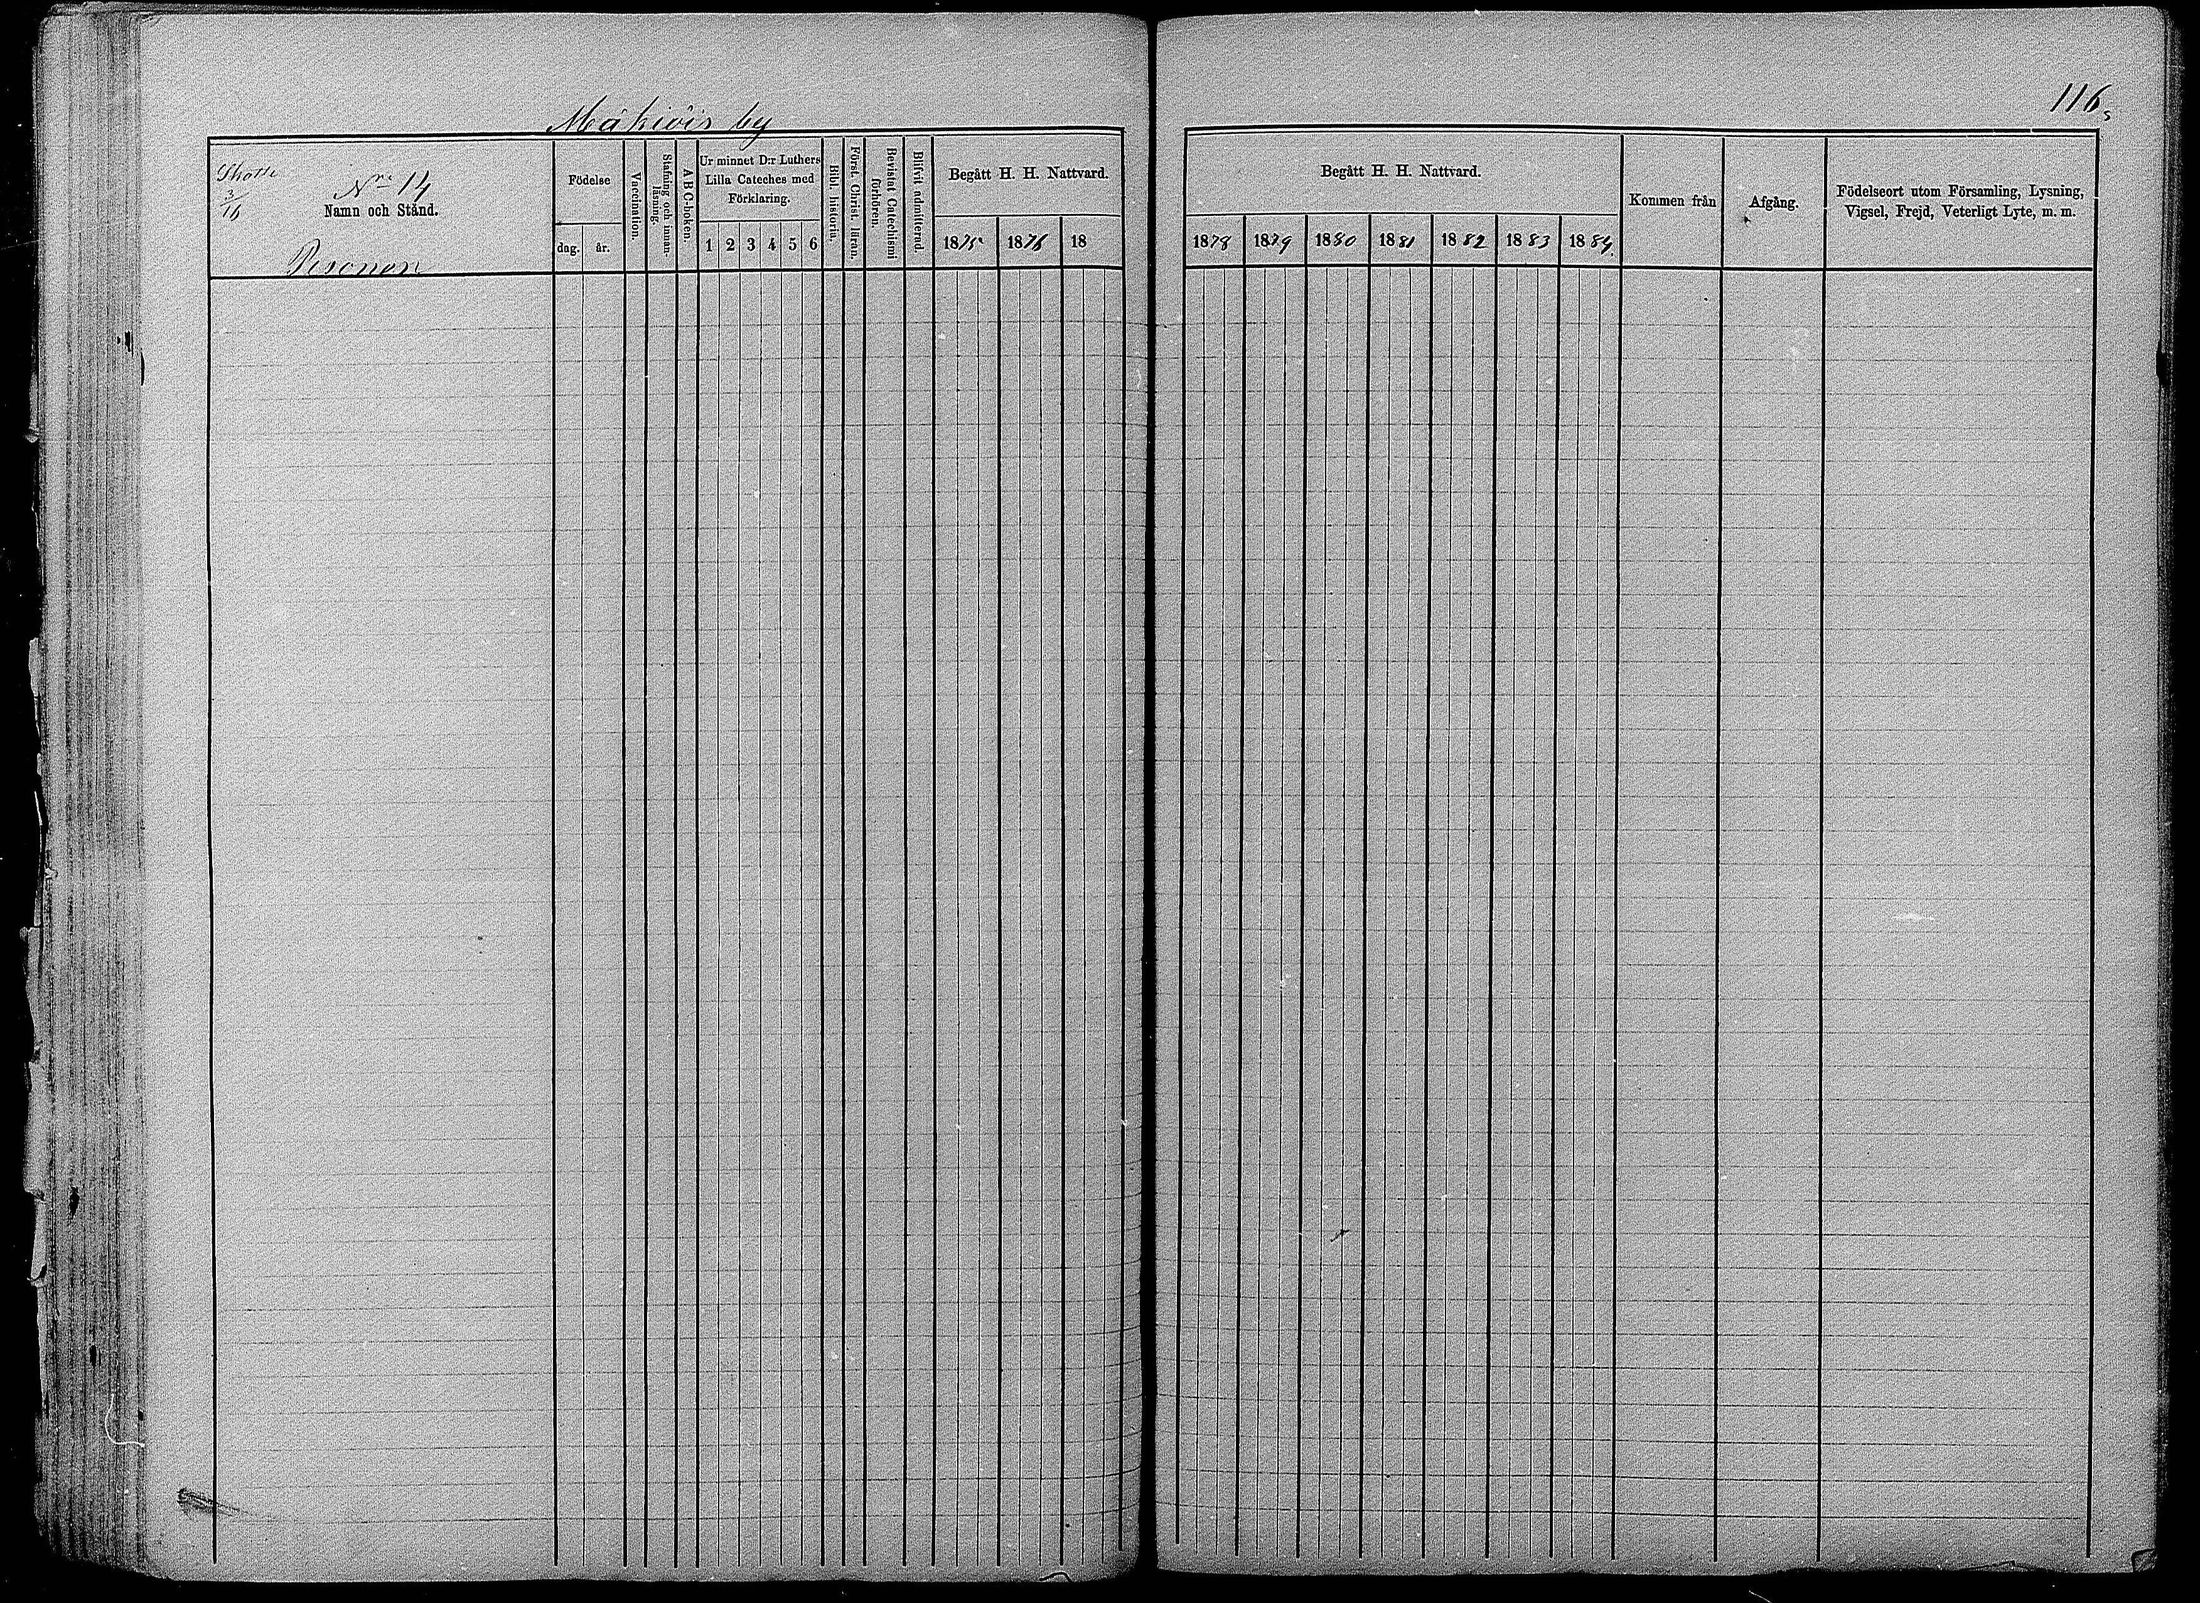 116.
Mäkivis by
Skatte
3/16
Nro 14
Namn och Stånd.
Pesonen
Födelse
dag. år.
Vaccination.
Stafning och innanläsning.
A B C-boken.
Ur minnet D:r Luthers Lilla Cateches med Förklaring.
1 2 3 4 5 6
Bibl. historia.
Först. Christ. läran.
Bevistat Catechismi förhören.
Blifvit admitterad.
Begått H. H. Nattvard.
1875 1876 18
Begått H. H. Nattvard.
1878 1879 1880 1881 1882 1883 1884
Kommen från
Afgång.
Födelseort utom Församling, Lysning,
Vigsel, Frejd, Veterligt Lyte, m. m.